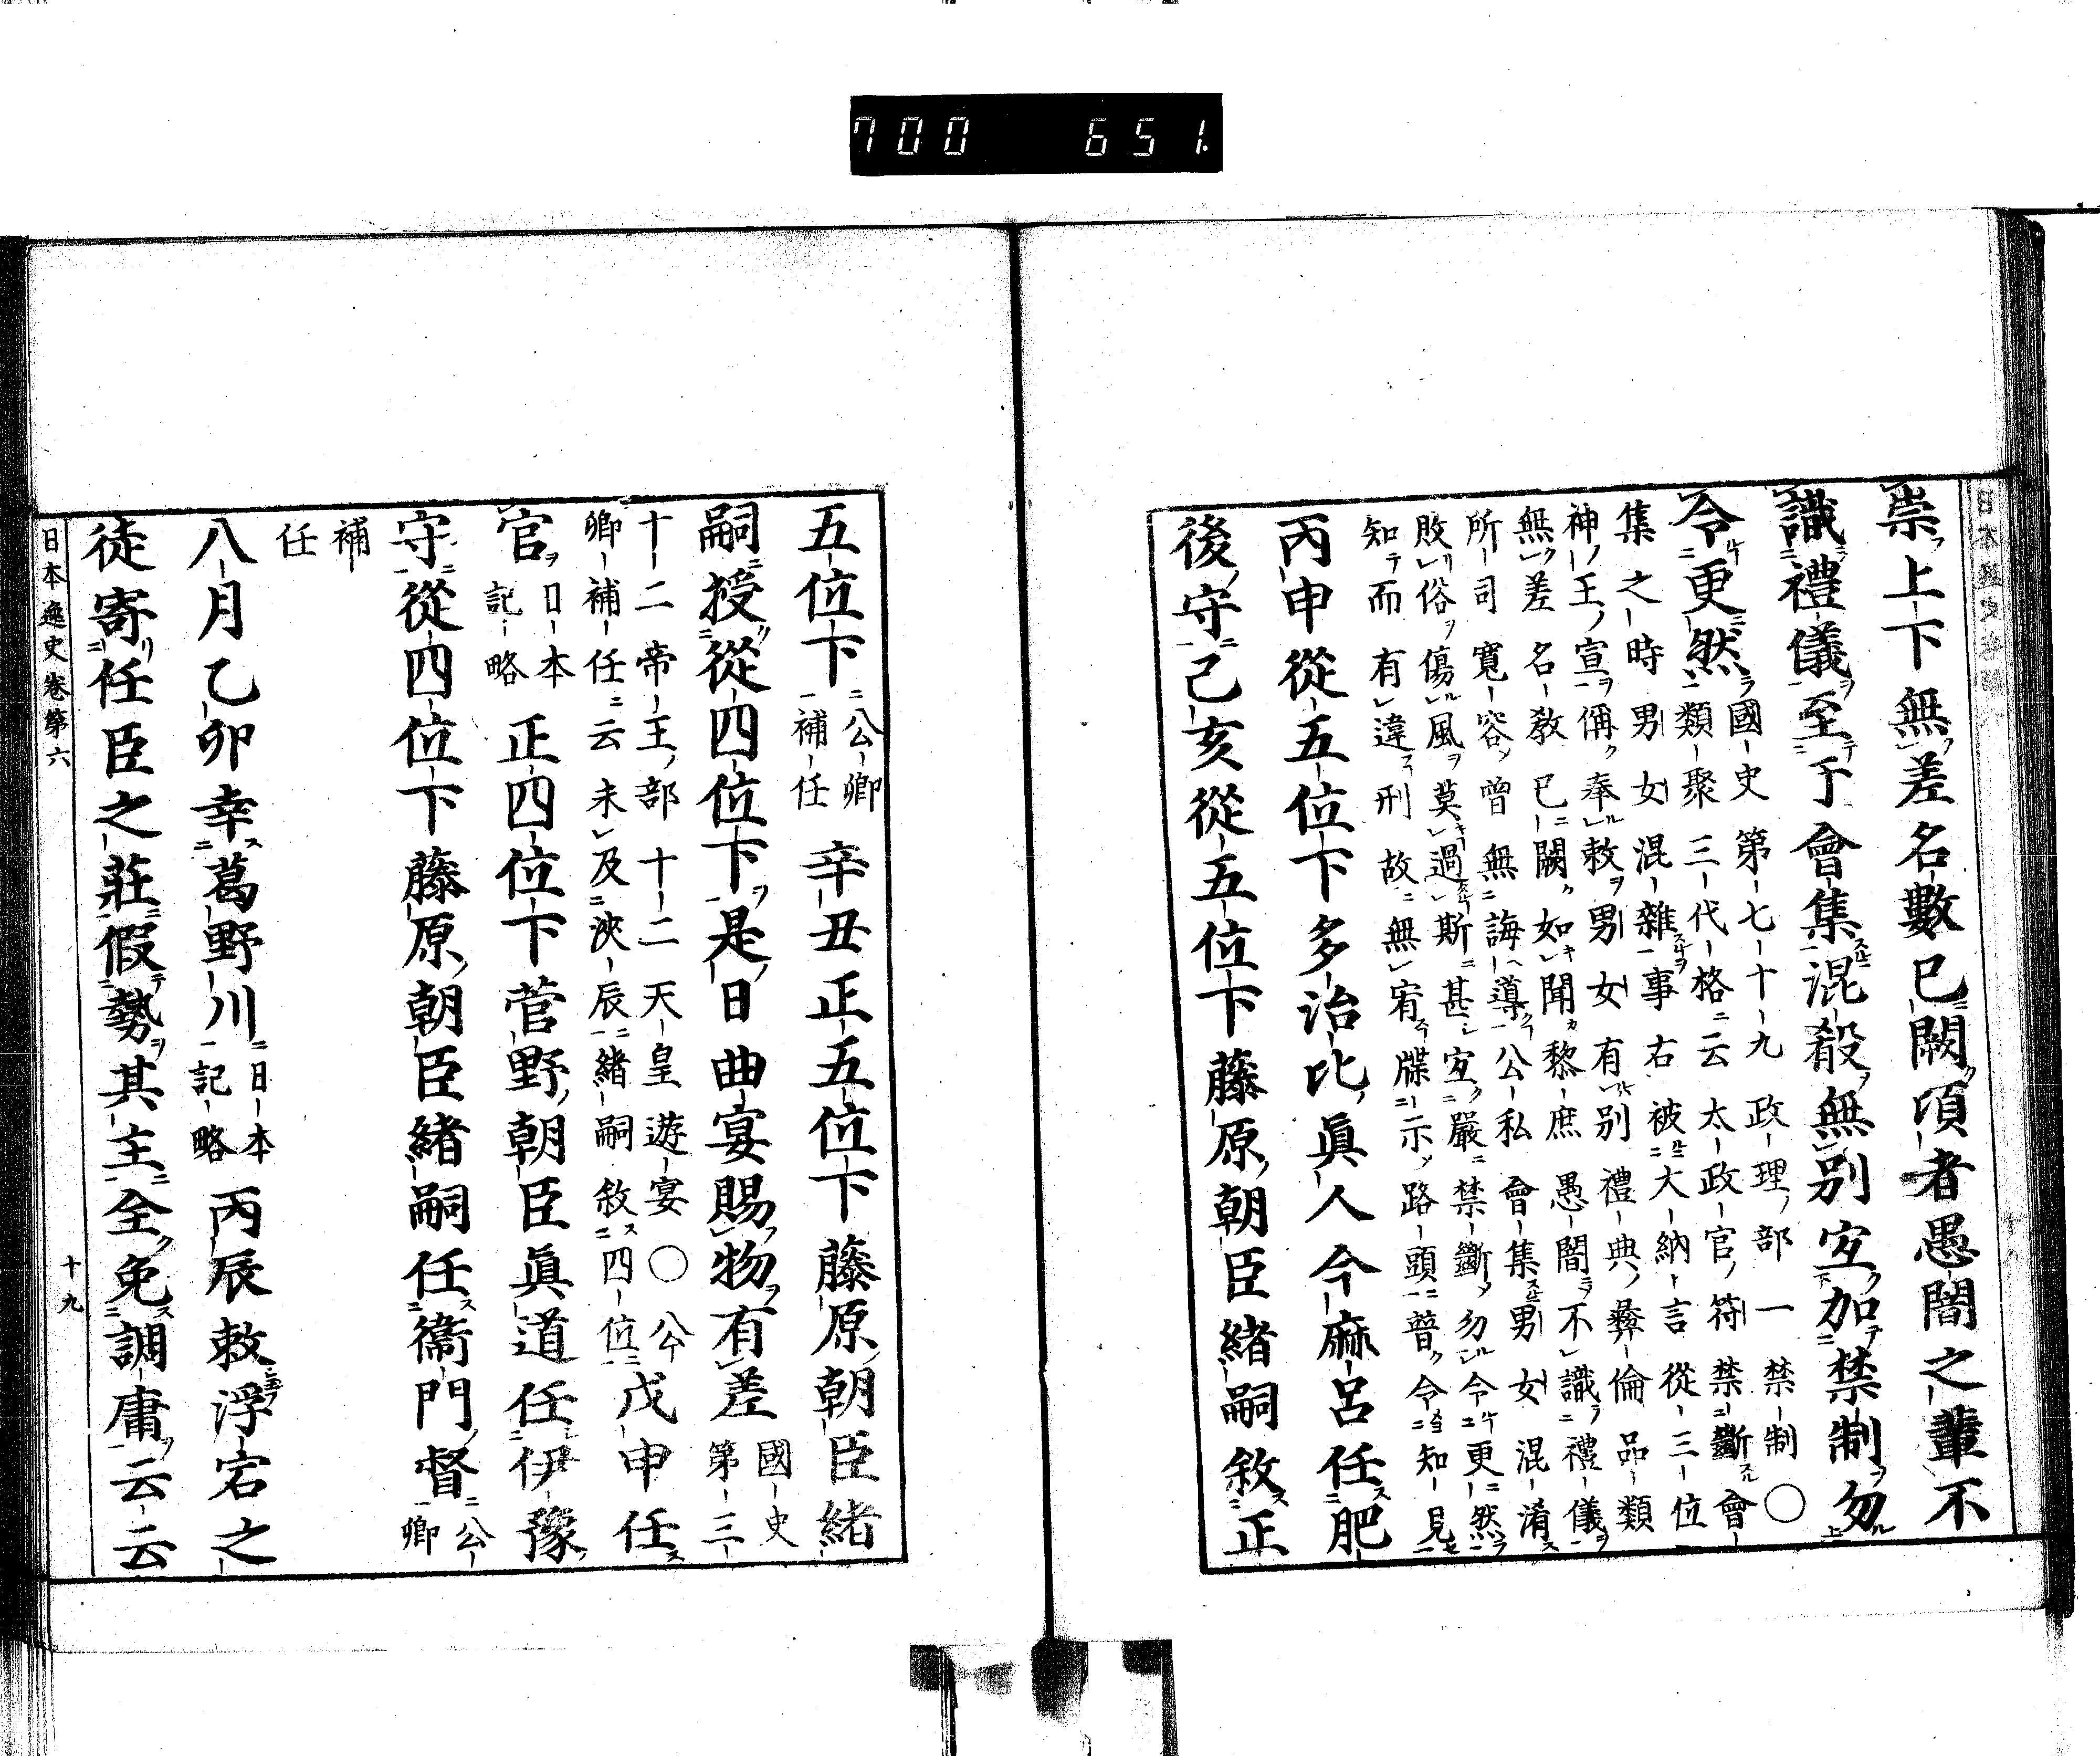 700 651.
崇上下無差名數已闕項者愚闇之輩不
識禮儀至于會集混殽無別宜加禁制勿
令更然
國史第七十九政理部一禁制○
類聚三代格云太政官符禁斷會
集之時男女混雜事右被大納言從三位
神王宣偁奉敕男女有別禮典彝倫品類
無差名教已闕如聞黎庶愚闇不識禮儀
所司寬容曾無誨導公私會集男女混淆
敗俗傷風莫過斯甚宜嚴禁斷勿令更然
知而有違刑故無宥牒示路頭普令知見
丙申從五位下多治比眞人今麻呂任肥
後守己亥從五位下藤原朝臣緒嗣敘正
五位下
公卿
補任
辛丑正五位下藤原朝臣緒
嗣授從四位下是日曲宴賜物有差
國史
第三
十二帝王部十二天皇遊宴○公
卿補任云未及浹辰緒嗣敘四位
戊申任
官
日本
記略
正四位下菅野朝臣眞道任伊豫
守從四位下藤原朝臣緒嗣任衞門督
公
卿
補
任
八月乙卯幸葛野川
日本
記略
丙辰敕浮宕之
徒寄任臣之莊假勢其主全免調庸云云
日本逸史卷第六
十九